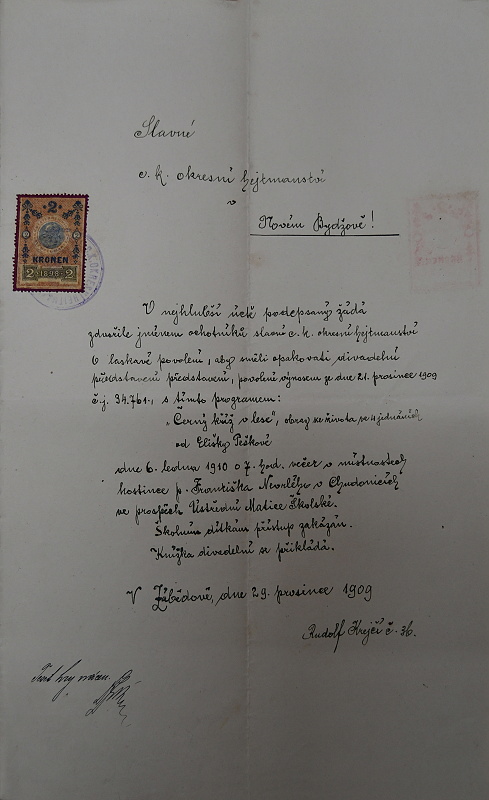 Slavné
c. k. okresní hejtmanství
v
Novém Bydžově!
2
2 2
KRONEN
2 1898 2
V nejhlubší úctě podepsaný žádá
zdvořile jménem ochotníků slavné c. k. okresní hejtmanství
o laskavé povolení, aby směli opakovati divadelní
představení představení, povolené výnosem ze dne 21. prosince 1909
č. j. 34.761., s tímto programem:
„Černý kříž v lese", obrazy ze života ve 4 jednáních
od Elišky Peškové
dne 6. ledna 1910 o 7. hod. večer v místnostech
hostince p. Františka Nevrlého v Chudonicích
ve prospěch Ústřední Matice Školské.
Školním dítkám přístup zakázán.
Knížka divadelní se přikládá.
V Zábědově, dne 29. prosince 1909
Rudolf Krejčí č. 36.